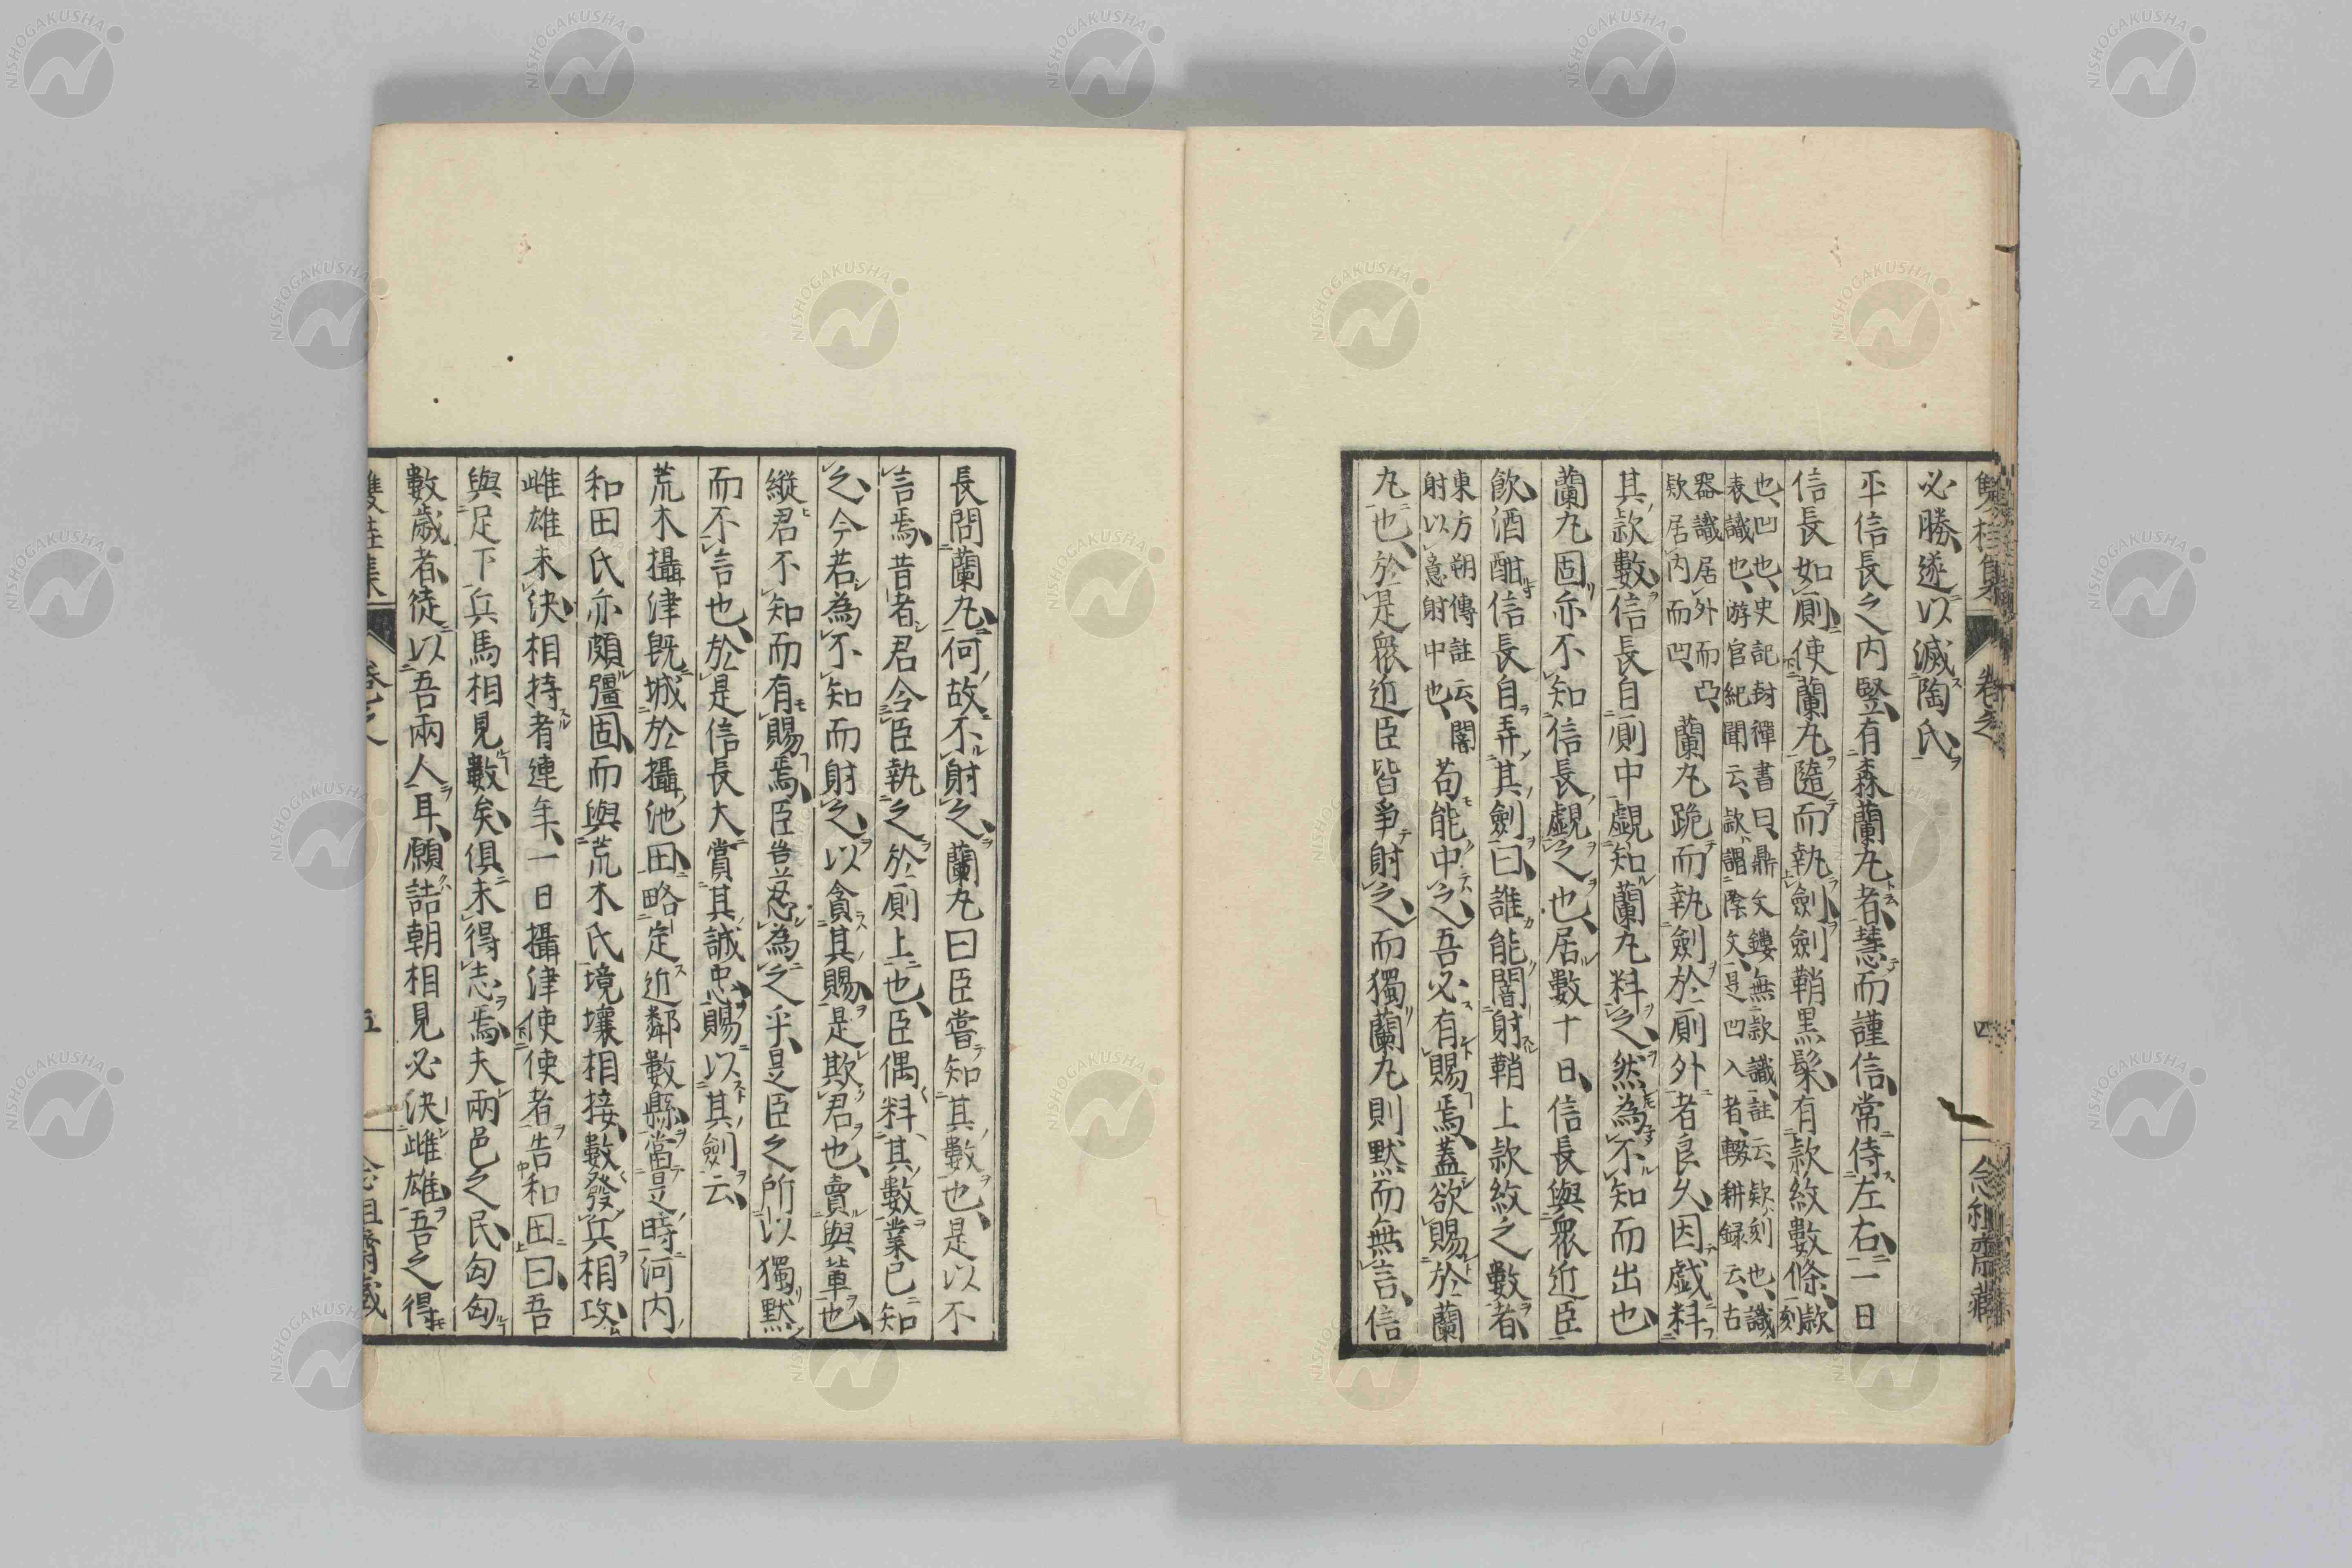 必勝、遂以滅陶氏、
平信長之内竪、有森蘭丸者、慧而謹信、常侍左右、一日
信長如厠、使蘭丸隨而執劍、劍鞘黒髹、有款紋數條、款刻
也、凹也、史記封禪書曰、鼎文鏤無款識、註云、款刻也、識
表識也、游官紀聞云、款謂陰文、是凹入者、輟耕録云、古
器識居外而凸、
款居内而凹、蘭丸跪而執劍於厠外者良久、因戯料
其款數、信長自厠中覷知蘭丸料之、然為不知而出也、
蘭丸固亦不知信長覷之也、居數十日、信長與衆近臣
飲、酒酣信長自弄其劍曰、誰能闇射鞘上款紋之數者、
東方朔傳註云、闇
射以意射中也、苟能中之、吾必有賜焉、蓋欲賜於蘭
丸也、於是衆近臣皆爭射之、而獨蘭丸則默而無言、信
長問蘭丸、何故不射之、蘭丸曰臣嘗知其數也、是以不
言焉、昔者君令臣執之於厠上也、臣偶料其數、業已知
之、今若為不知而射之、以貪其賜、是欺君也、賣與輩也、
縱君不知而有賜焉、臣豈忍為之乎、是臣之所以獨默
而不言也、於是信長大賞其誠忠、賜以其劍云、
荒木攝津既城於攝池田、略定近鄰數縣、當是時河内
和田氏亦頗彊固、而與荒木氏境壤相接、數發兵相攻、
雌雄未決、相持者連年、一日攝津使使者告和田曰、吾
與足下兵馬相見數矣、俱未得志焉、夫兩邑之民、匈匈
數歳者、徒以吾兩人耳、願詰朝相見必決雌雄、吾之得